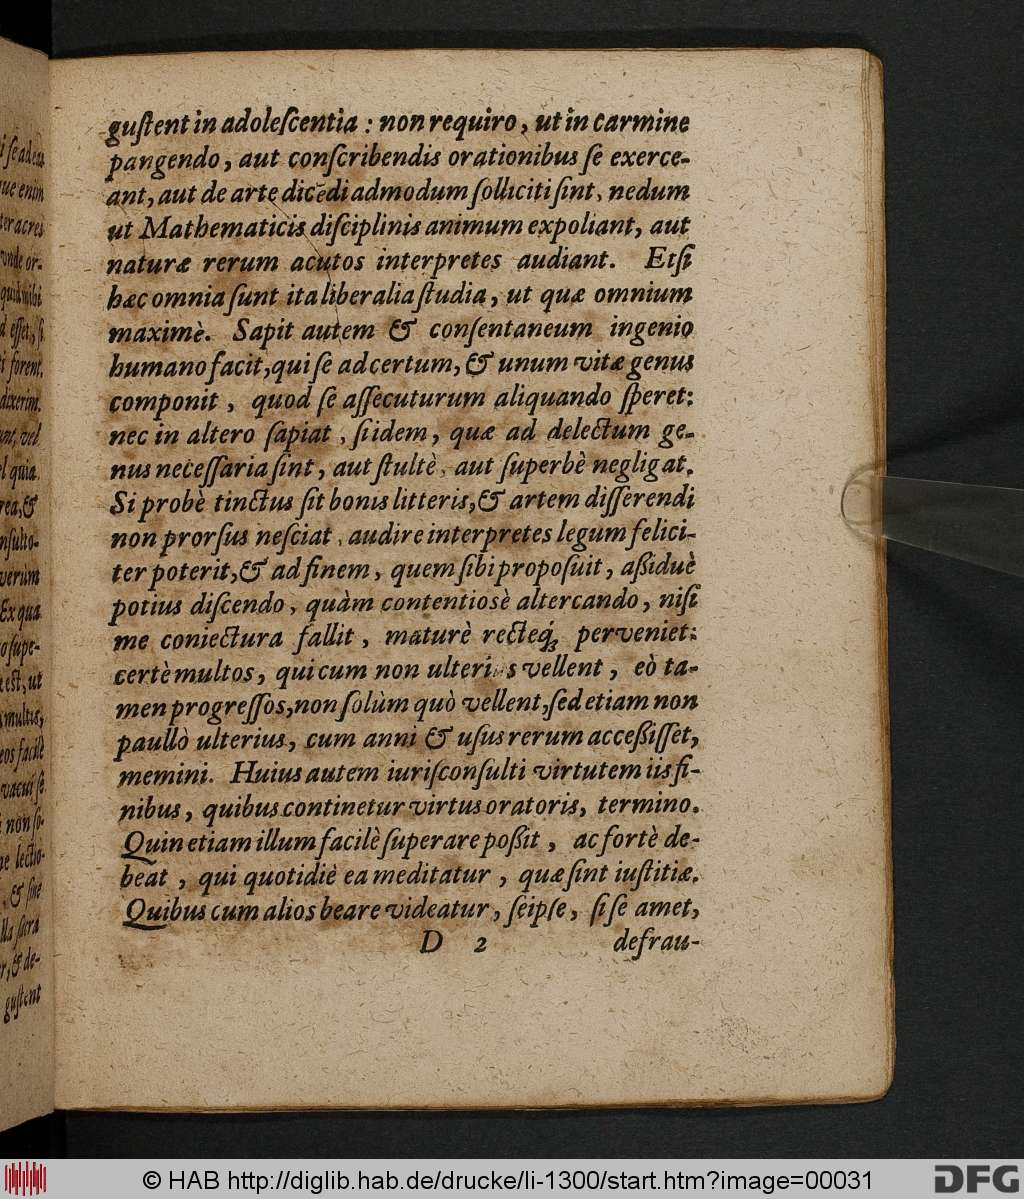 guſtent in adoleſcentia : non requiro, ut in carmine
pangendo, aut conſcribendis orationibus ſe exerce-
ant, aut de arte dicēdi admodum ſolliciti ſint, nedum
ut Mathematicis diſciplinis animum expoliant, aut
naturæ rerum acutos interpretes audiant. Etſi
hæc omnia ſunt ita liberalia ſtudia, ut quæ omnium
maximè. Sapit autem & conſentaneum ingenio
humano facit, qui ſe ad certum, & unum vitæ genus
componit, quod ſe aſſecuturum aliquando ſperet:
nec in altero ſapiat, ſi idem, quæ ad delectum ge-
nus neceſſaria ſint, aut ſtultè, aut ſuperbè negligat.
Si probè tinctus ſit bonis litteris, & artem diſſerendi
non prorſus neſciat, audire interpretes legum felici-
ter poterit, & ad finem, quem ſibi propoſuit, aßiduè
potius diſcendo, quàm contentiosè altercando, niſi
me coniectura fallit, maturè recteq́ꝫ perveniet:
certè multos, qui cum non ulterius vellent, eò ta-
men progreſſos, non ſolùm quò vellent, ſed etiam non
paullò ulterius, cum anni & uſus rerum acceßiſſet,
memini. Huius autem iuriſconſulti virtutem iis fi-
nibus, quibus continetur virtus oratoris, termino.
Quin etiam illum facilè ſuperare poßit, ac fortè de-
beat, qui quotidiè ea meditatur, quæ ſint iuſtitiæ.
Quibus cum alios beare videatur, ſeipſe, ſi ſe amet,
D 2 defrau-
ue enim
ter acres
vnde or-
quid mihi
d eſſet, ſi
i forent.
dixerim.
vel
el quia
rea, &
nſulto-
verùm
Ex qua
o ſupe-
eſt, ut
multis,
eos facilè
vacui ſe
i non ſo-
ne lectio-
, & ſine
lla ſacra
r, & de-
guſtent
© HAB http://diglib.hab.de/drucke/li-1300/start.htm?image=00031
DFG